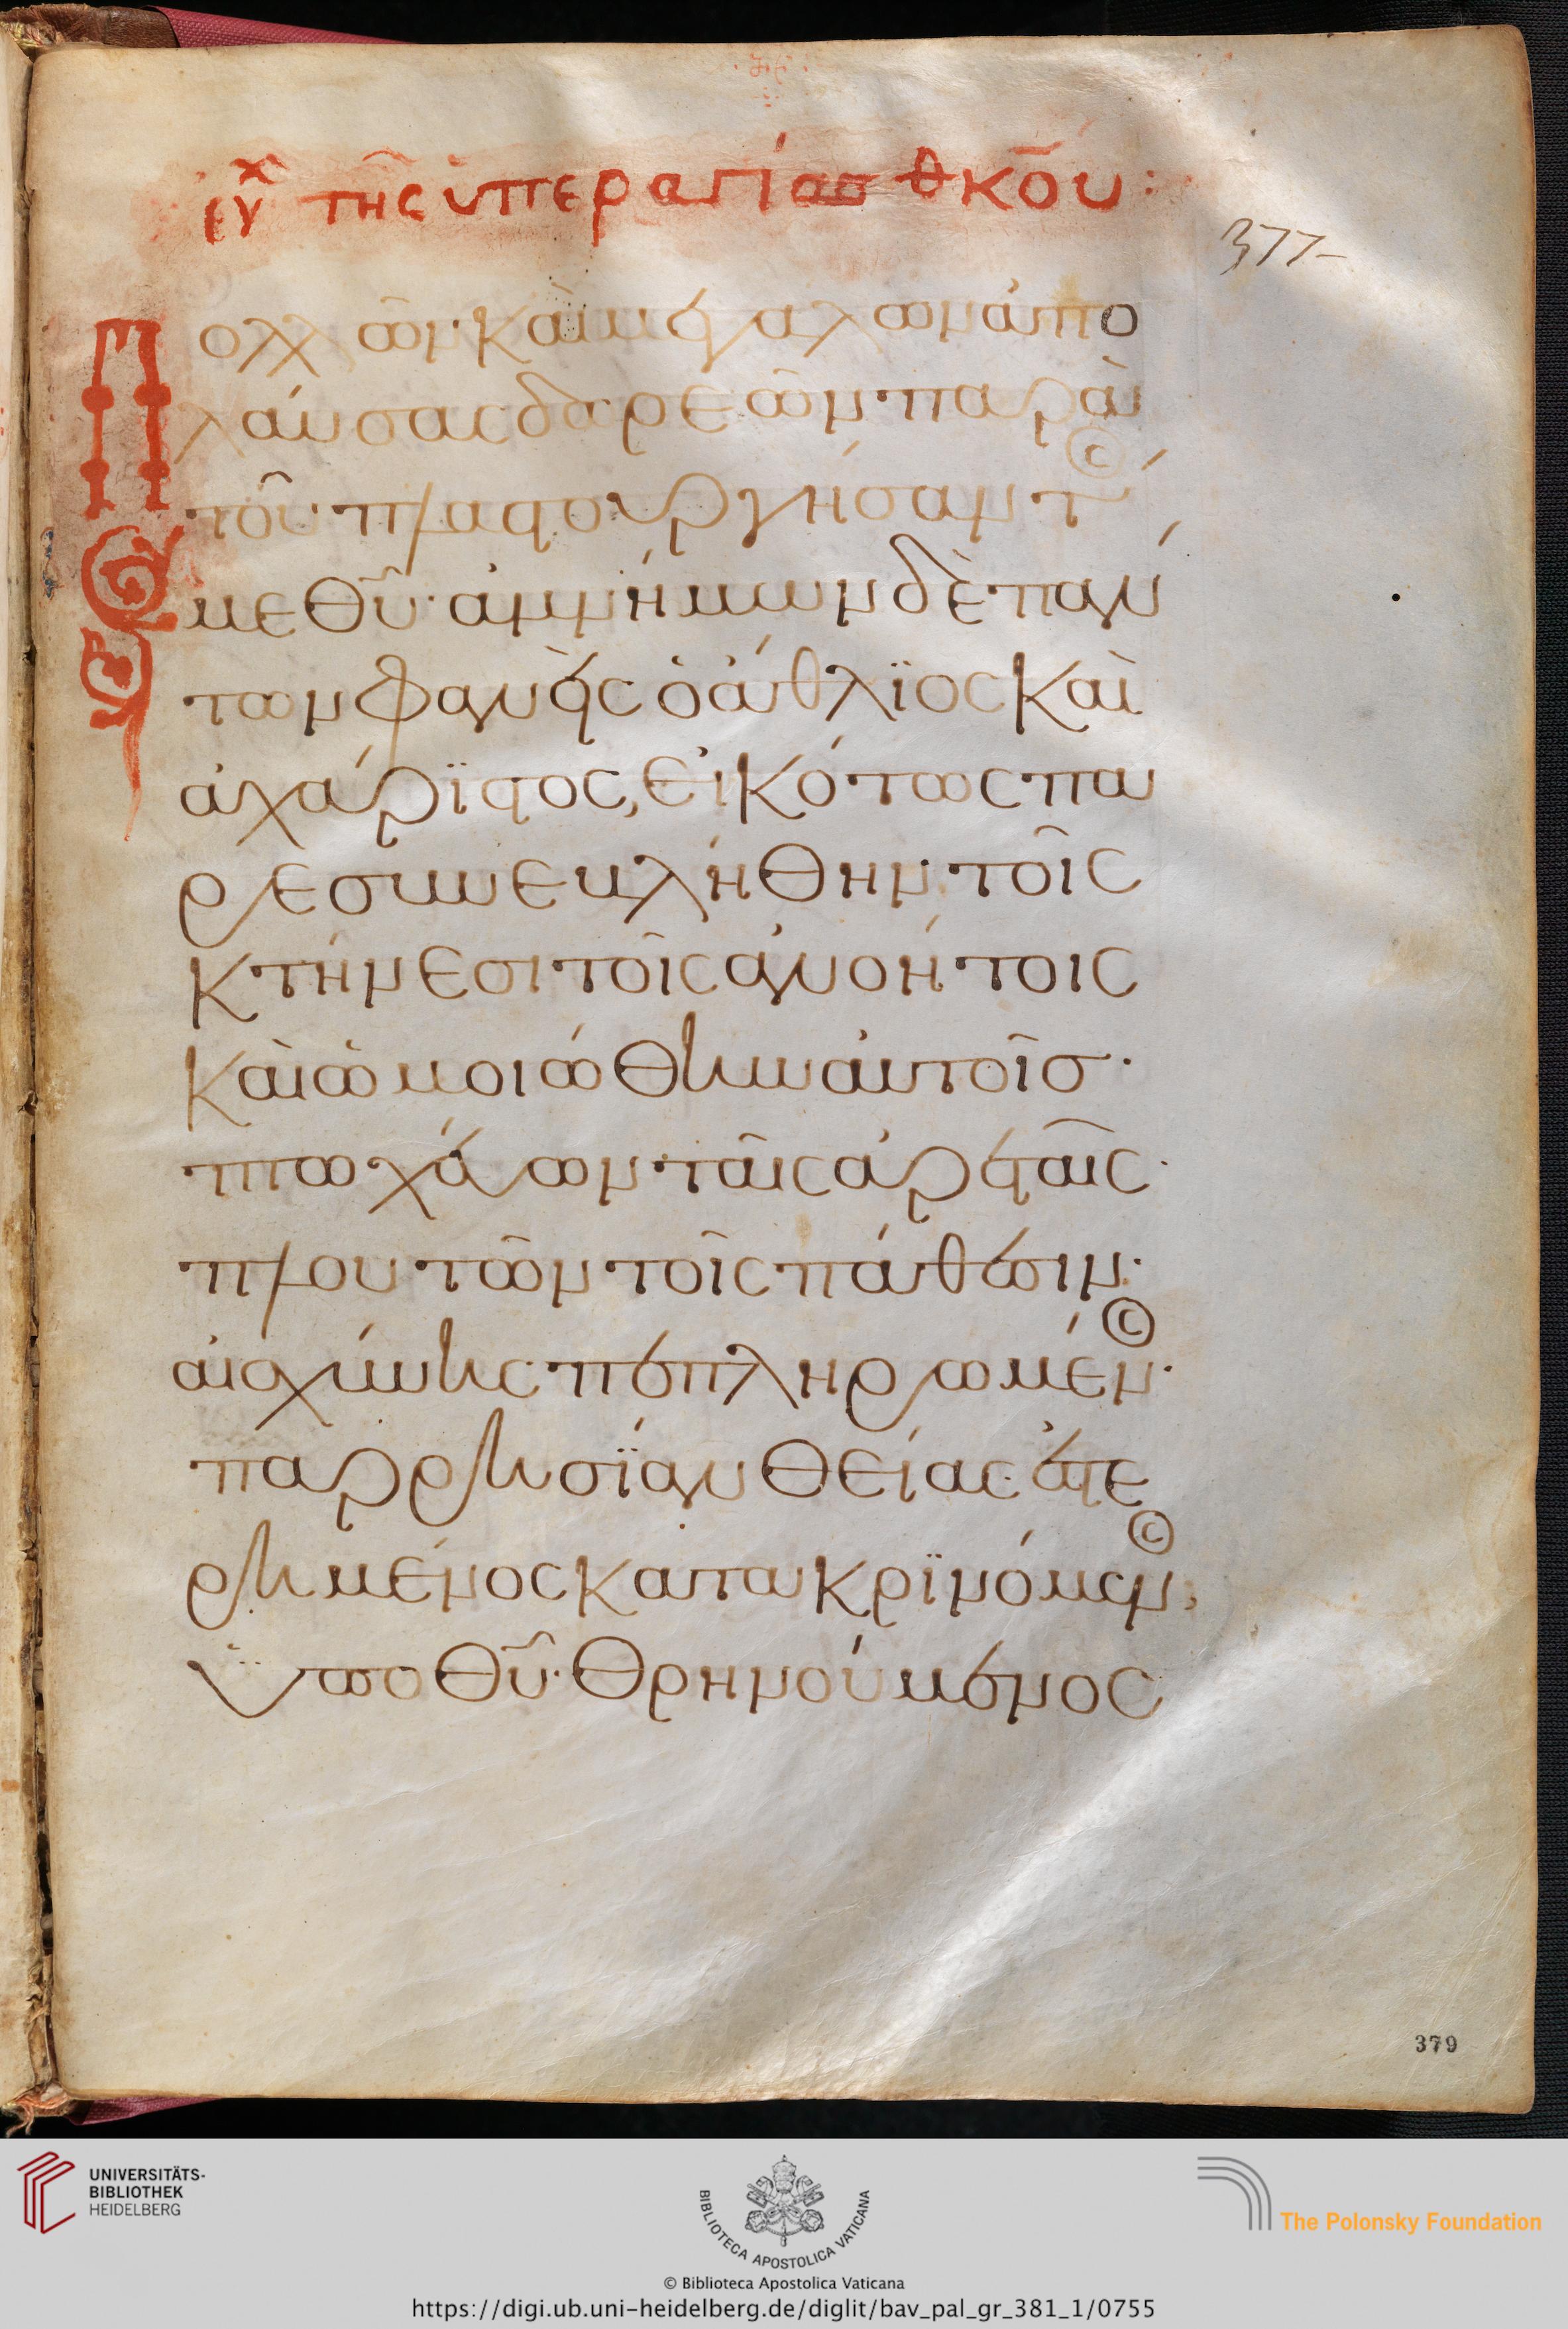 εὐχ τῆς ὑπεραγίας θκου:
377-
Πολλῶν καὶ μεγάλων ἀπο
λαύσας δωρεῶν παρὰ
τοῦ πλαστουργήσαντός
με Θῦ· ἀμνήμων δὲ πάν
των φανεὶς ὁ ἄθλϊος καὶ
ἀχάρϊστος, εἰκότως πα
ρεσυνεκλήθην τοῖς
κτήνεσι τοῖς ἀνοήτοις
καὶ ὡμοιώθην αὐτοῖσ·
πτωχεύων ταῖς ἀρεταῖς·
πλουτῶν τοῖς πάθεσιν·
αἰσχύνης πεπληρωμένος·
παρρησΐαν θείας ἐστε
ρημένος κατακρϊνόμενος,
ὑπὸ Θῦ· Θρηνούμενος
379
UNIVERSITÄTS-
BIBLIOTHEK
HEIDELBERG
BIBLIOTECA APOSTOLICA VATICANA
The Polonsky Foundation
© Biblioteca Apostolica Vaticana
https://digi.ub.uni-heidelberg.de/diglit/bav_pal_gr_381_1/0755